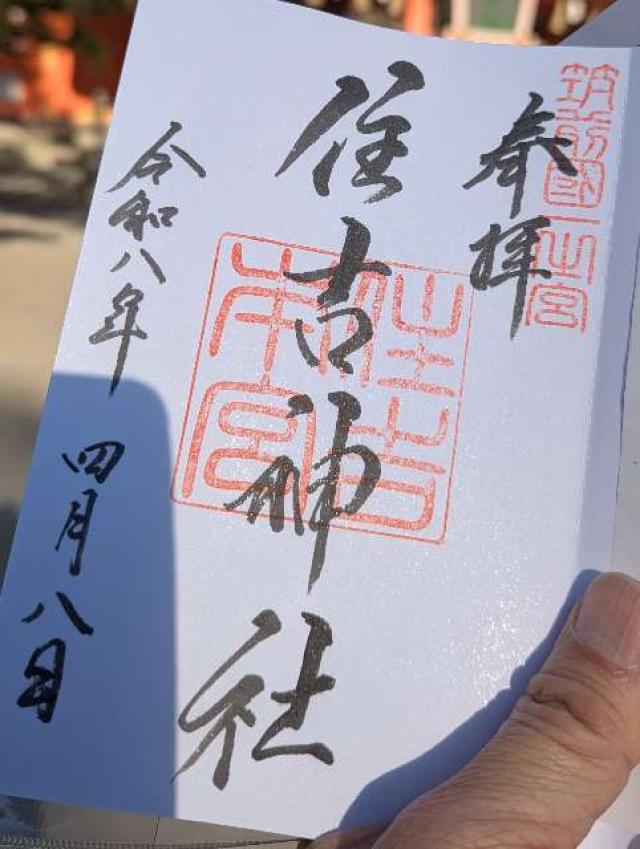 奉拝
筑前國一之宮
住吉神社
住吉本宮
令和八年 四月八日